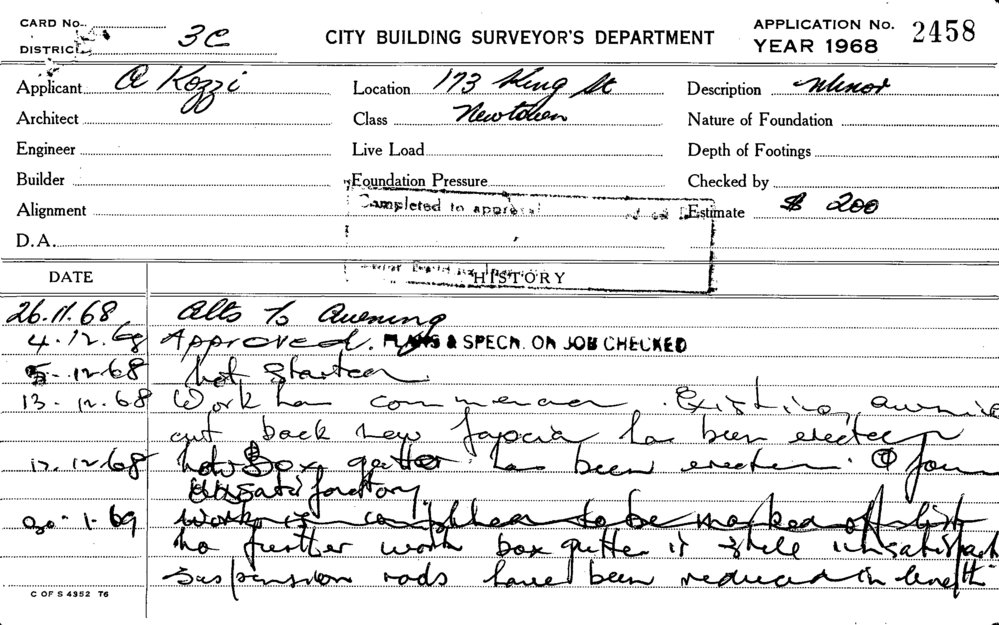 CARD No. CITY BUILDING SURVEYOR'S DEPARTMENT APPLICATION No. 2458
DISTRICT 3C YEAR 1968
Applicant A Kozzi Location 173 King St Description Minor
Architect Class Newtown Nature of Foundation
Engineer Live Load Depth of Footings
Builder Foundation Pressure Checked by
Completed to approval
Alignment Estimate $ 200
D.A.
DATE HISTORY
26.11.68 Alts to Awening
4.12.68 Approved. PLANS & SPECN. ON JOB CHECKED
5.12.68 Not Started
13.12.68 Work has commenced. Existing awning
cut back new fascia has been erected
17.12.68 Box gutter has been erected. found
unsatisfactory
30.1.69 work is completed to be marked off list
no further work box gutter is still unsatisfact
Suspension rods have been reduced in length
C OF S 4352 T6